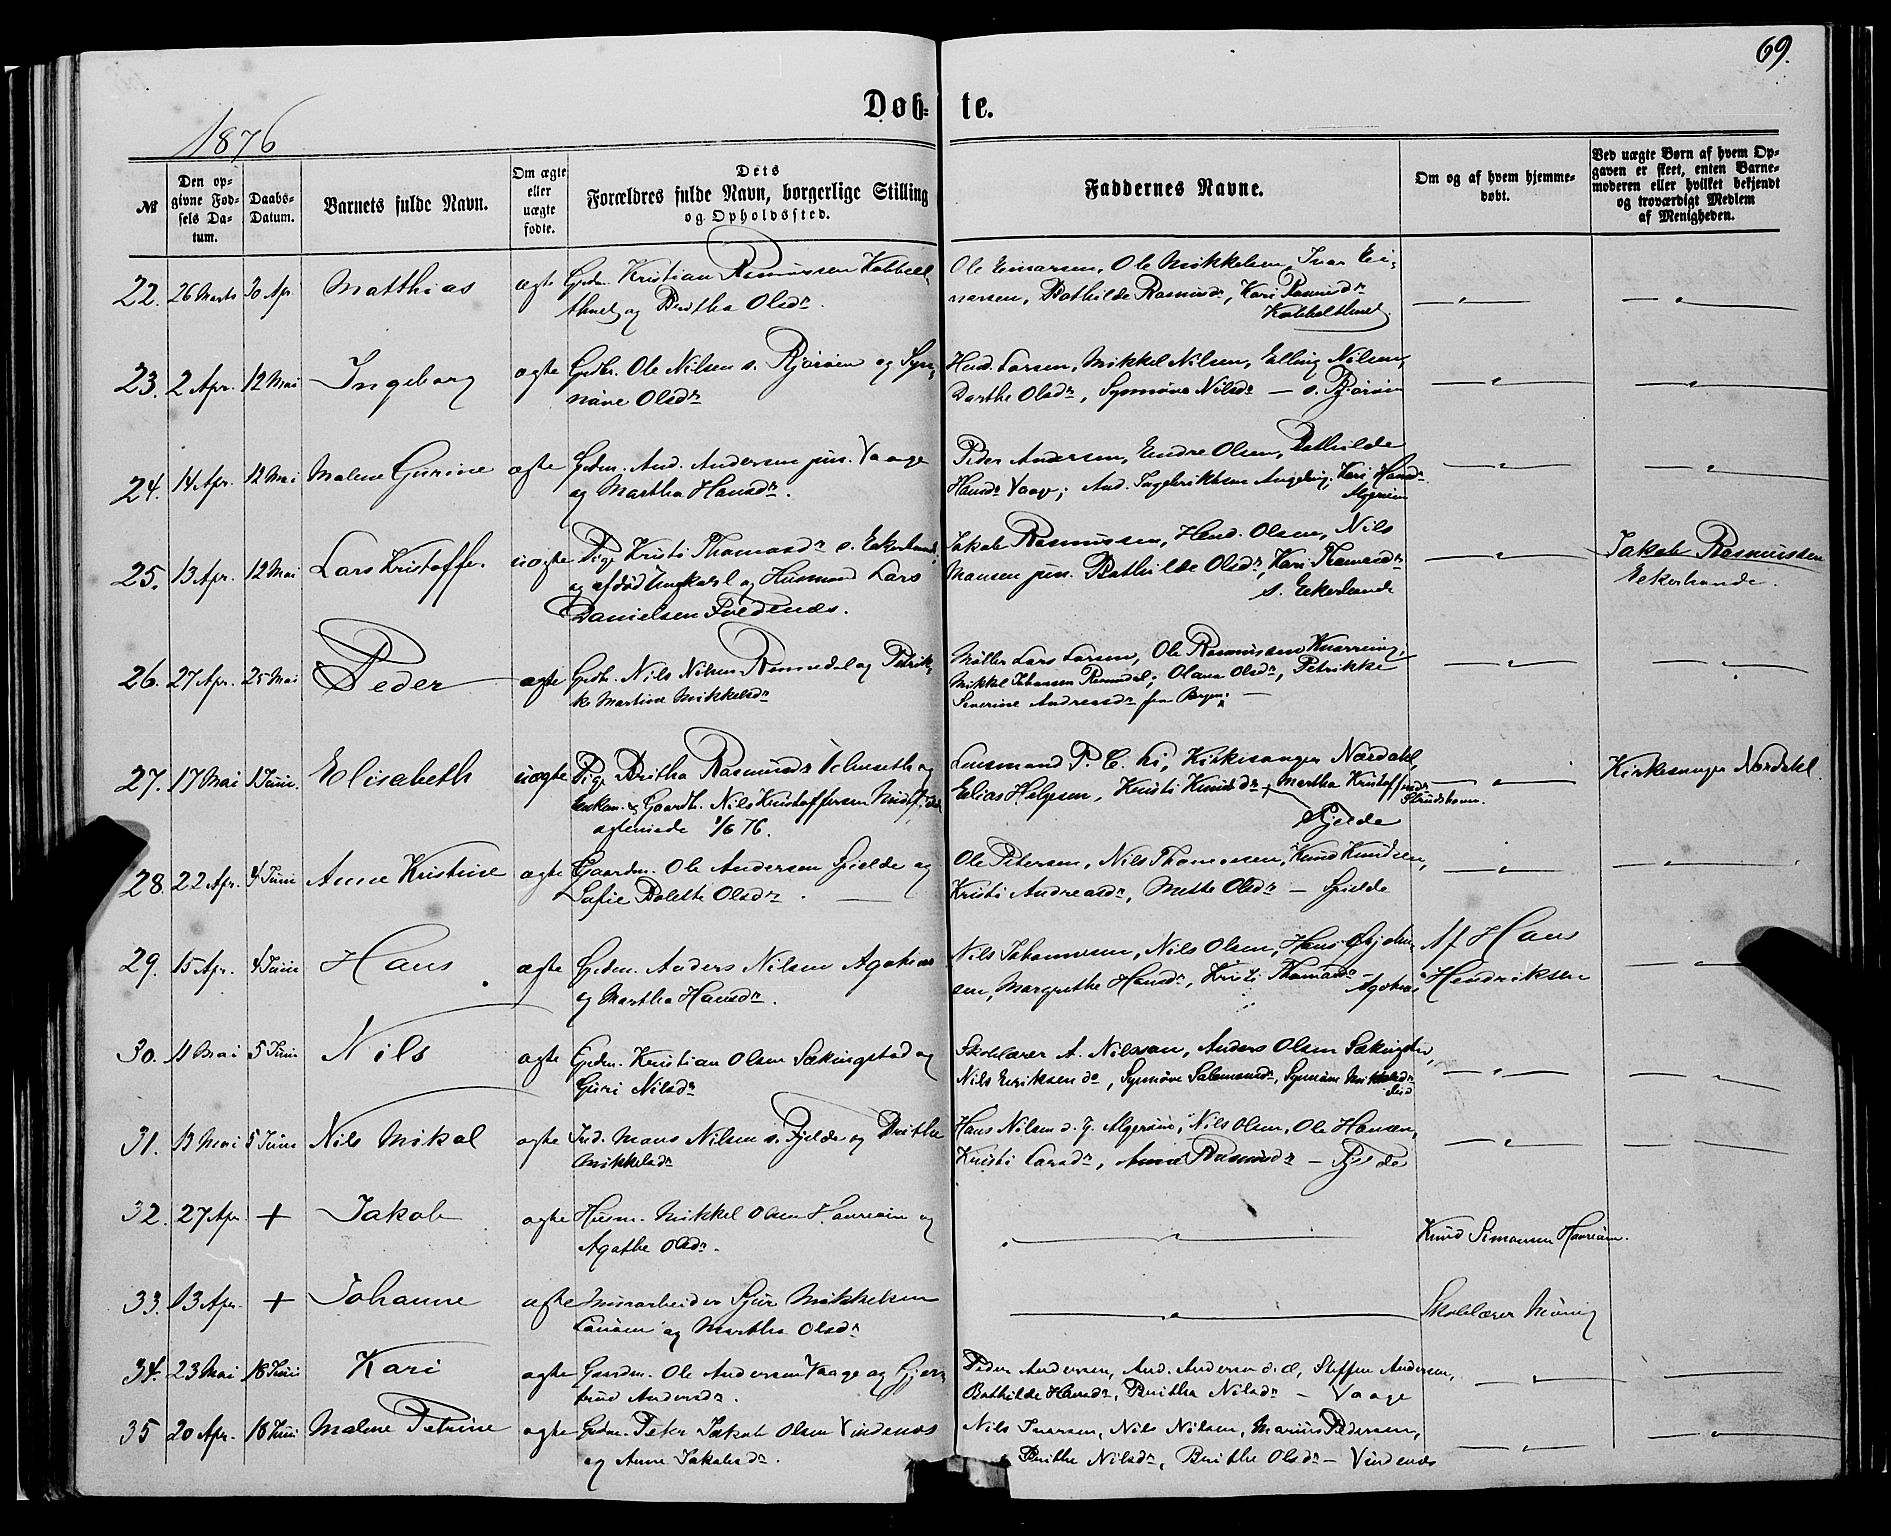 69.
Døb- te.
1876
№
Den opgivne Fødsels Datum.
Daabs-Datum.
Barnets fulde Navn.
Om ægte eller uægte fødte.
Dets Forældres fulde Navn, borgerlige Stilling og Opholdssted.
Faddernes Navne.
Om og af hvem hjemmedøbt.
Ved uægte Børn af hvem Opgaven er skeet, enten Barnemoderen eller hvilket bekjendt og troværdigt Medlem af Menigheden.
22. 26 Marts 30 Apr Matthias ægte Grdm. Kristian Rasmussen
og Britha Olsdr.
Ole Einarsen, Ole Mikkelsen, Ivar Ei-
narsen, Bothilde Rasmusdr, Kari Rasmusdr
23. 2 Apr. 12 Mai Ingeborg ægte Grdbr. Ole Nilsen s. Bjorøen og Syn-
nøve Olsdr
Hend. Larsen, Mikkel Nilsen, Elling Nilsen,
Dorthe Olsdr, Synnøve Nilsdr — s. Bjorøen
24. 14 Apr. 12 Mai Malene Gurine ægte Grdm. And. Andersen jun. Vaage
og Martha Hansdr.
Peder Andersen, Endre Olsen, Bothilde
Hansdr Vaage; And. Ingebriktsen Angeltveit; Kari Hansdr
Algerøen
25. 13 Apr. 12 Mai Lars Kristoffer uægte Pige Kristi Thomasdr s. Ekerhovde
og afdød Ungkarl og Husmand Lars
Danielsen
Jakob Rasmussen, Hend. Olsen, Nils
Monsen jun. Bothilde Olsdr, Kari Thomasdr
s. Ekerhovde
Jakob Rasmussen
Ekerhovde.
26. 27 Apr. 25 Mai Peder ægte Grdbr. Nils Nilsen og Petrik-
ke Martine Mikkelsdr
Møller Lars Larsen, Ole Rasmussen Knarrevig,
Mikkel Johansen; Oline Olsdr, Petrikke
Severine Andreasdr fra Bergen. —
27. 17 Mai 1 Juni. Elisabeth uægte Pige Britha Rasmusdr og
Enkem. & Gaardb. Nils Kristoffersen
ægteviede 1/6 76.
Lensmand P. C. Li, Kirkesanger Nordahl,
Elias Helgesen, Kristi Knudsdr, Martha Kristoffersdr
Fjelde
Kirkesanger Nordahl.
28 22 Apr. 4 Juni Anne Kristine ægte Gaardm. Ole Andersen Fjelde og
Sofie Bolette Olsdr. —
Ole Petersen, Nils Thomassen, Knud Knudsen,
Kristi Andreasdr, Mette Olsdr — Fjelde
29. 15 Apr. 4 Juni Hans ægte Grdm. Anders Nilsen Agotnes
og Martha Hansdr.
Nils Johannesen, Nils Olsen, Hans
sen, Margrethe Hansdr, Kristi Thomasdr — Agotnes
Af Hans
Hendriksen
30. 11 Mai 5 Juni Nils ægte Grdm. Kristian Olsen Sækingstad og
Guri Nilsdr
Skolelærer A. Nilssen, Anders Olsen Sækingstad,
Nils Eriksen do, Synnøve Salomonsdr, Synnøve Mikkelsdr
31. 13 Mai 5 Juni Nils Mikal ægte Ind. Mons Nilsen s. Fjelde og Britha
Mikkelsdr
Hans Nilsen d. y. Algerøen, Nils Olsen, Ole Hansen,
Kristi Larsdr, Anna Rasmusdr — Fjelde
32. 27 Apr + Jakob ægte Husm. Mikkel Olsen Havreøen og
Agathe Olsdr.
Knud Simonsen Havreøen.
33. 13 Apr. + Johanne ægte Sjur Mikkelsen
og Martha Olsdr
Skolelærer
34. 23 Mai 18 Juni Kari ægte Gaardm. Ole Andersen Vaage og Gjer-
trud Andersdr.
Peder Andersen, And. Andersen d. æ, Steffen Andersen,
Bothilde Hansdr, Britha Nilsdr — Vaage
35 20 Apr. 18 Juni Malene Petrine ægte Grdm. Peter Jakob Olsen Vindenes
og Anne Jakobsdr.
Nils Iversen, Nils Nilsen, Marius Pedersen,
Brithe Nilsdr, Brithe Olsdr — Vindenes